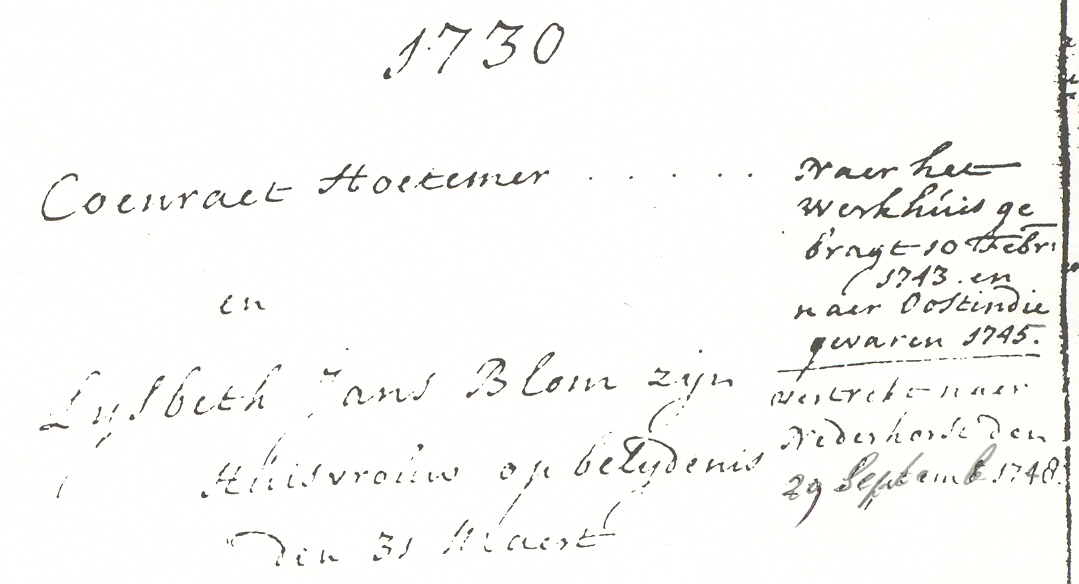 1730
Coenraet Hoetemer . . . . . .
en
Lijsbeth Jans Blom zijn
Huisvrouw op belydenis
den 31 Maert
Naer het
werkhuis ge
bragt 10 Febr:
1743. en
naer Oostindie
gevaren 1745.
vertrekt naer
Nederhorst den
29 Septemb 1748.